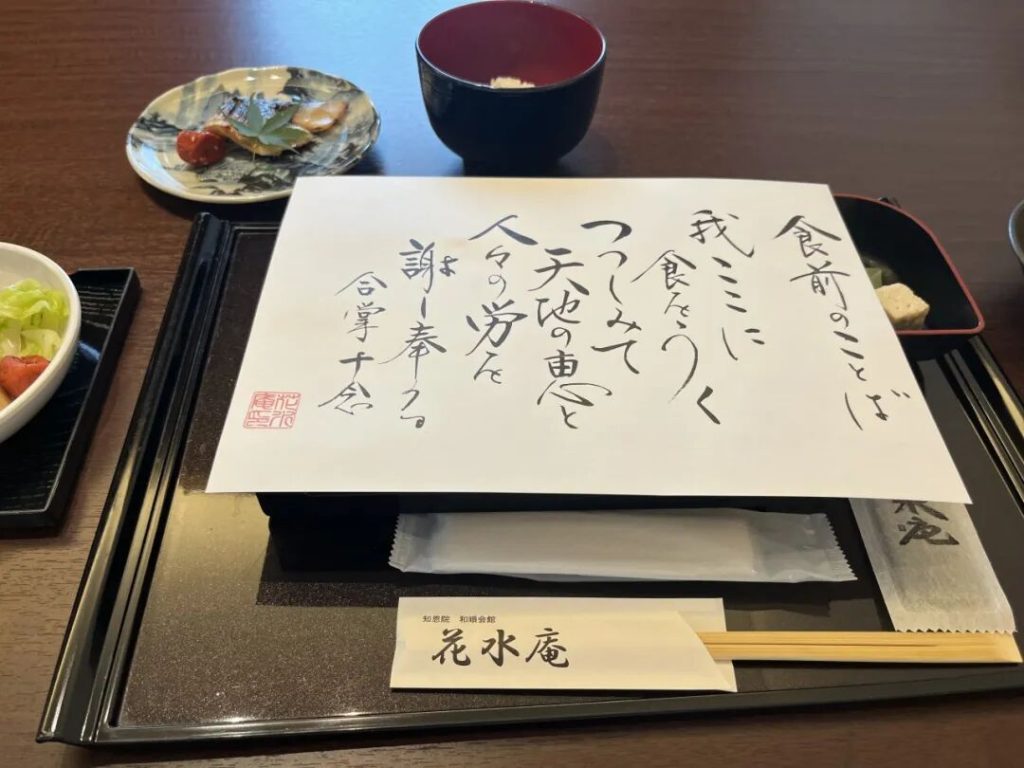 食前のことば
我ここに
食をうく
つつしみて
天地の恵と
人々の労を
謝し奉る
合掌十念
知恩院 和順会館
花水庵
水庵